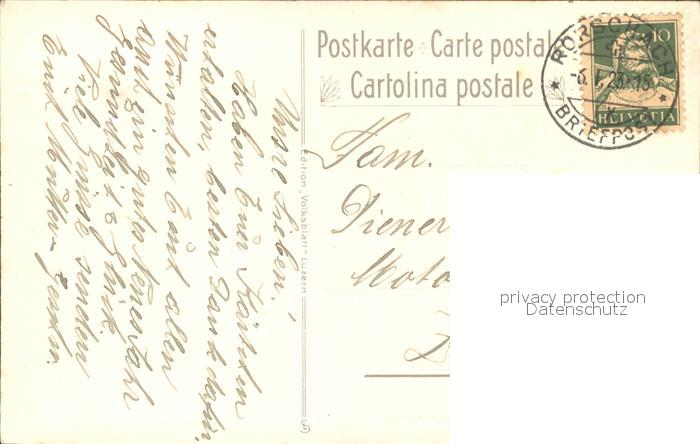 Postkarte Carte postale
Cartolina postale
10
HELVETIA
RORSCHACH
BRIEFPOST
Edition „Volksblatt“ Luzern
Fam.
Diener
Moto
privacy protection
Datenschutz
Unsre Lieben!
Haben Euer Kärtchen
erhalten, besten Dank dafür.
Wünschen Euch allen
ein gutes Neues Jahr
Gesundheit & Glück.
Viele Grüsse senden
Euch Mutter